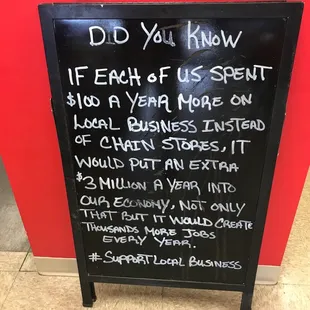 DID YOU KNOW
IF EACH OF US SPENT
$100 A YEAR MORE ON
LOCAL BUSINESS INSTEAD
OF CHAIN STORES, IT
WOULD PUT AN EXTRA
$3 MILLION A YEAR INTO
OUR ECONOMY, NOT ONLY
THAT BUT IT WOULD CREATE
THOUSANDS MORE JOBS
EVERY YEAR.
#SUPPORT LOCAL BUSINESS